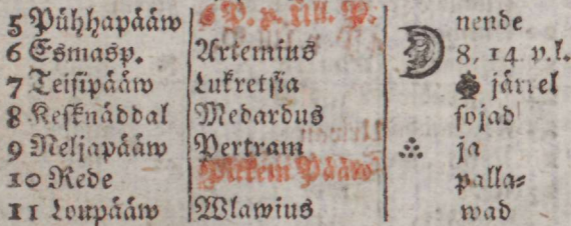 5 Pühhapääw 6 P. p. Üll. P. nende
6 Esmasp. Artemius 8, 14 p. l.
7 Teisipääw Lukretsia järrel
8 Kesknäddal Medardus sojad
9 Neljapääw Pertram ja
10 Rede Pitkem Pääw palla=
11 Loupääw Wlawius wad